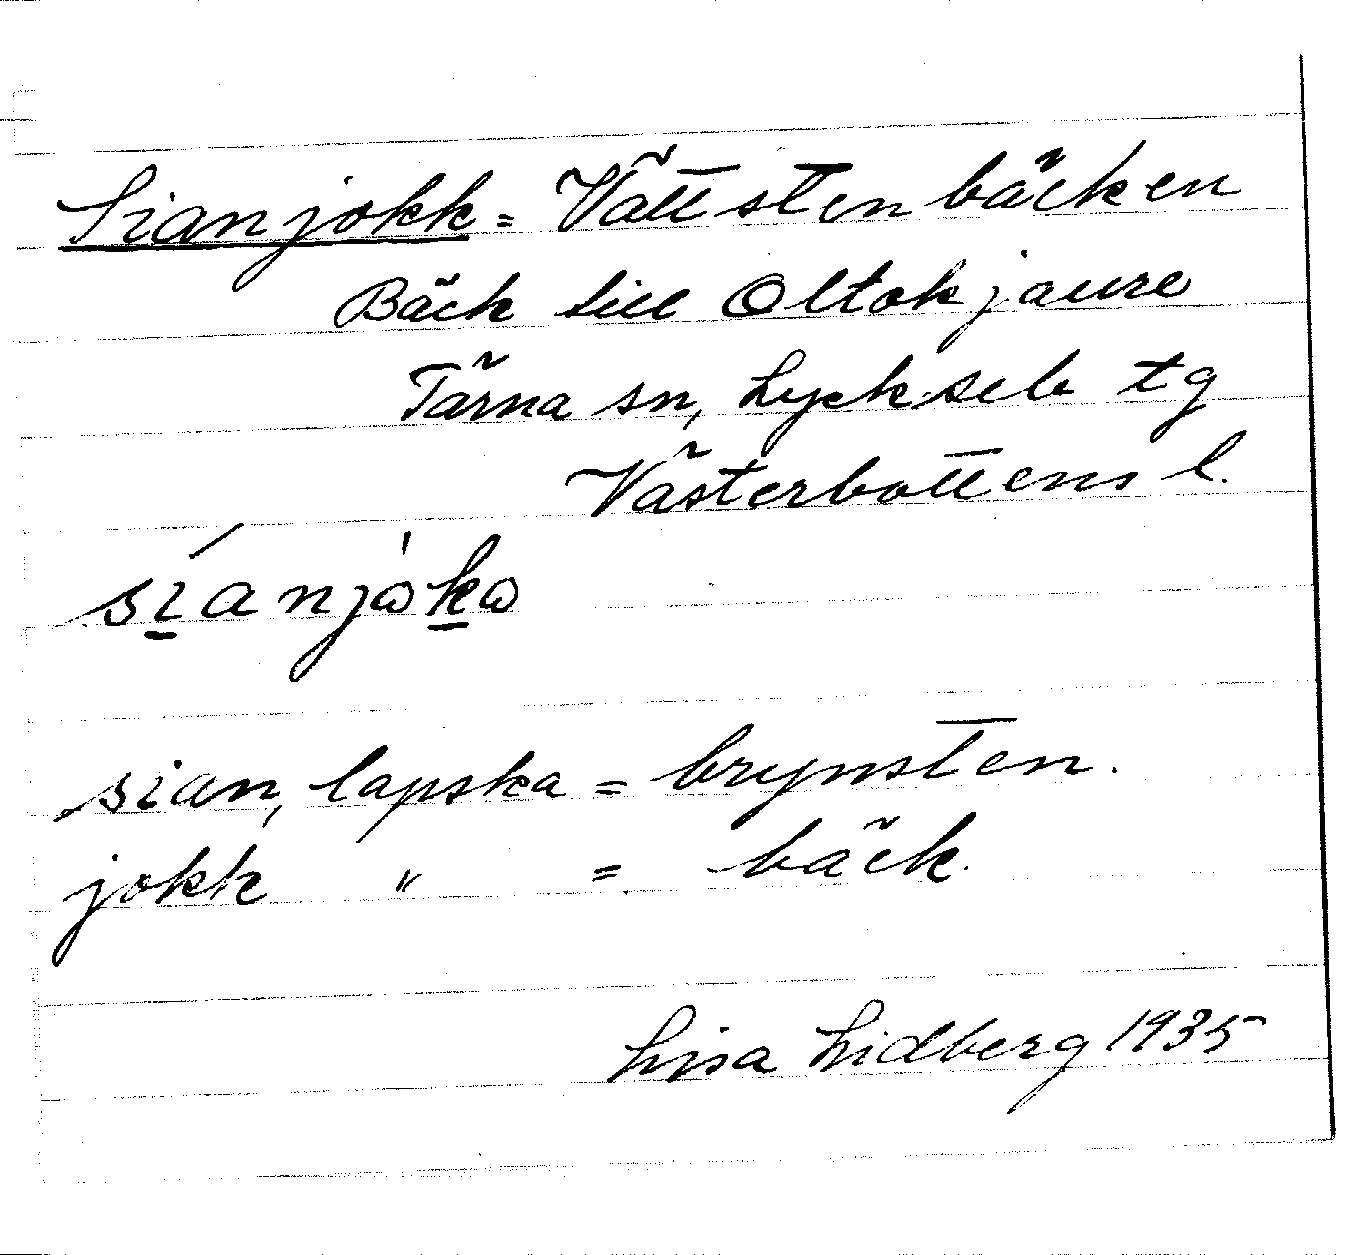 Sianjokk = Vättstenbäcken
Bäck till Oltokjaure
Tärna sn, Lycksele tg
Västerbottens l.
síanjòkω
sian, lapska = brynsten.
jokk " = bäck.
Lisa Lidberg 1935